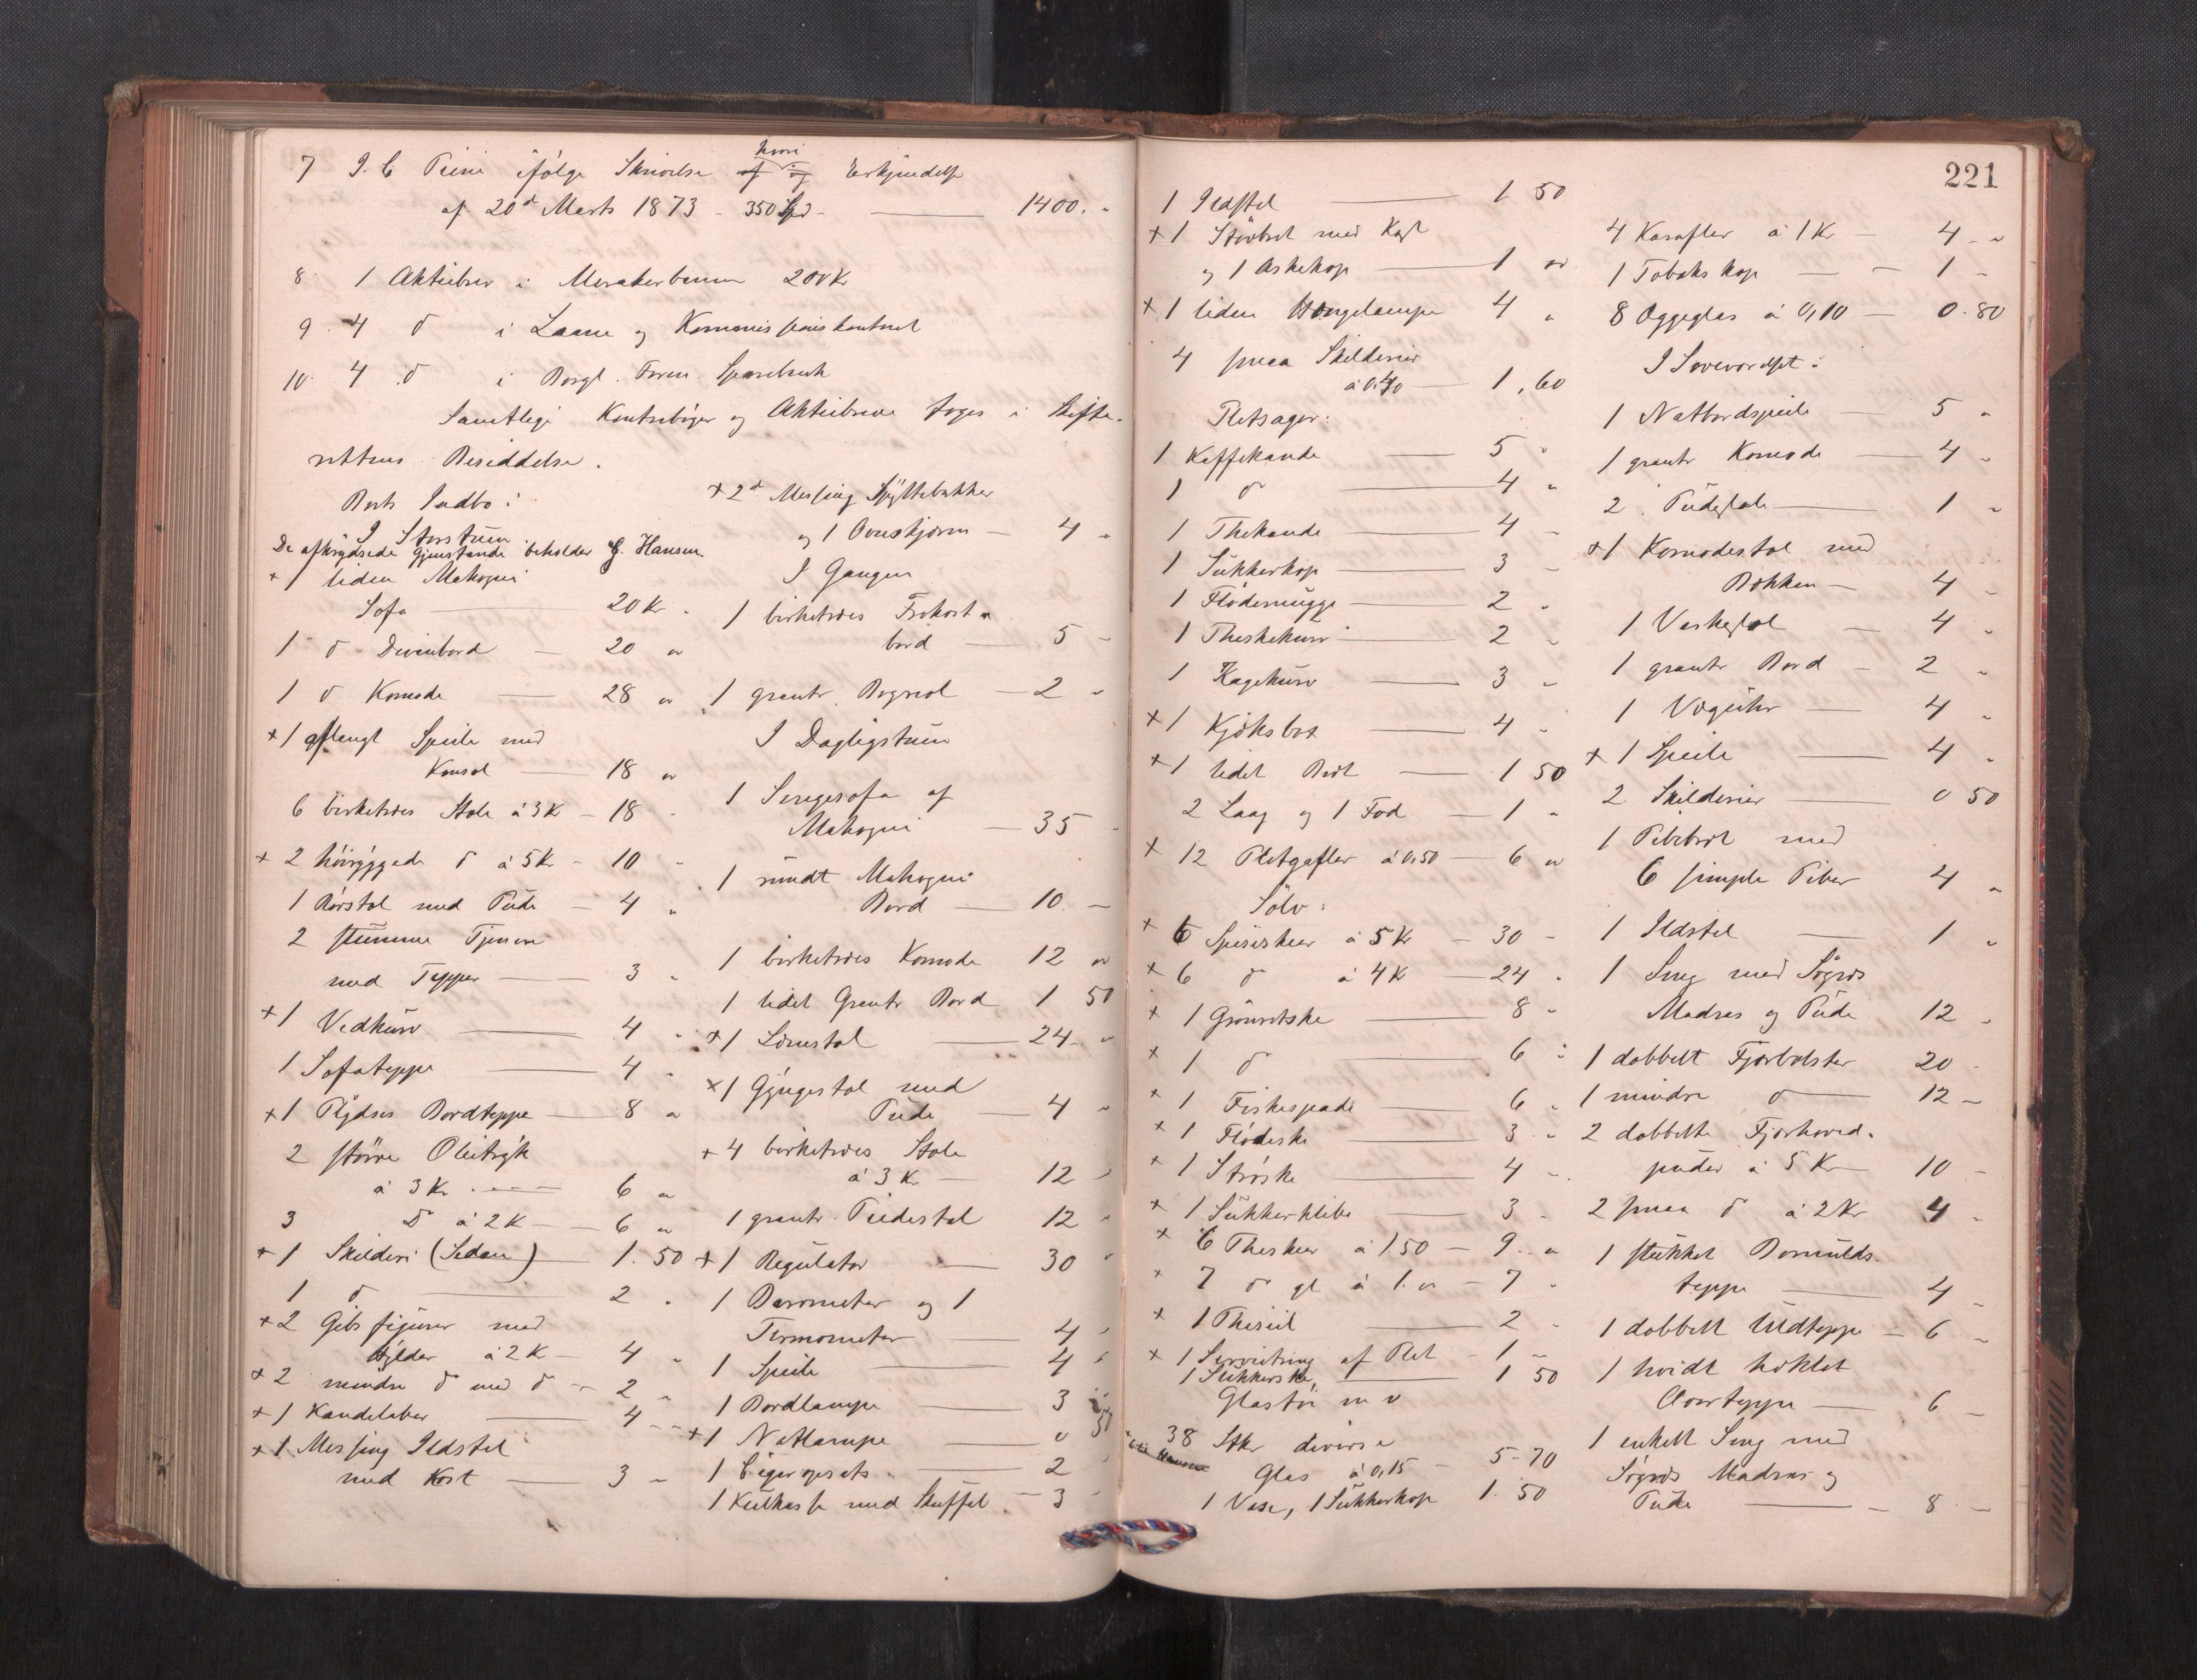 7 J. C. Peine ifølge Skrivelse hvori Erkjendelse
af 20de Marts 1873 - 350 Spd - 1400. "
8 1 Aktiebrev i Merakerbanen 200 Kr
9. 4 do i Laane og Kommissionskontoret
10. 4 do i Borgl. Foren. Sparebank
Samtlige Kontrabøger og Aktiebreve toges i Skifte-
rettens Besiddelse.
Boets Indbo:
I Storstuen
De afkrydsede Gjenstande beholder G. Hansen.
+ 1 liden Mahogni
Sofa 20 Kr "
1 do Divanbord 20 "
1 do Komode 28 "
+ 1 aflangt Speile med
Konsol 18 "
6 birketræes Stole á 3 K 18 "
+ 2 høiryggede do á 5 Kr 10 "
1 Rørstol med Pude 4 "
2 stumme Tjenere
med Tepper 3 "
+ 1 Vedkurv 4 "
1 Sofateppe 4 "
+ 1 Plydses Bordteppe 8 "
2 større Olietryk
á 3 Kr. 6 "
3 Do á 2 K 6 "
+ 1 Skilderi (Sedan) 1.50
1 do 2 "
+ 2 Gibsfigurer med
Hylder á 2 K 4 "
+ 2 mindre do med do 2 "
+ 1 Kandelaber 4 "
+ 1 Messing Ildstel
med Kost 3 "
+ 2de Messing Spyttebakker
og 1 Ovnskjærm 4 "
I Gangen
1 birketræes Frokost-
bord 5 "
1 grantr. Bogreol 2 "
I Dagligstuen
1 Sengesofa af
Mahogni 35 "
1 rundt Mahogni
Bord 10 "
1 birketræes Komode 12 "
1 lidet Grantr Bord 1 50
+ 1 Lænestol 24 "
+ 1 Gyngestol med
Pude 4 "
+ 4 birketræes Stole
á 3 Kr 12 "
1 grantr. Pidestal 12 "
+ 1 Regulator 30 "
1 Barometer og 1
Termometer 4 "
1 Speile 4 "
1 Bordlampe 3 "
+ 1 Natlampe 0 50
1 Cigaropsats 2 "
1 Kulkasse med Skuffel 3 "
221
1 Ildstel 1 50
+ 1 Støvbret med Kost
og 1 Askekop 1 "
+ 1 liden Hengelampe 4 "
4 smaa Skilderier
á 0.40 1,60
Pletsager:
1 Kaffekande 5 "
1 do 4 "
1 Thekande 4 "
1 Sukkerkop 3 "
1 Flødemugge 2 "
1 Theskekurv 2 "
1 Kagekurv 3 "
+ 1 Kjæksbox 4 "
+ 1 lidet Bræt 1 50
2 Laag og 1 Fad 1 "
+ 12 Pletgafler á 0,50 6 "
Sølv:
+ 6 Spiseskeer á 5 Kr 30 "
+ 6 do á 4 K 24 "
+ 1 Grønretske 8 "
+ 1 do 6 "
+ 1 Fiskespade 6 "
+ 1 Flødeske 3 "
+ 1 Strøske 4 "
+ 1 Sukkerklibe 3 "
+ 6 Theskeer á 1 50 9 "
+ 7 do gl á 1. " 7 "
+ 1 Thesiil 2 "
+ 1 Servietring af Plet 1 "
1 Sukkerske, 1 50
Glastøi m v
38 Stkr diverse
Glas á 0,15 5-70
1 Vase, 1 Sukkerkop 1. 50
4 Karafler á 1 Kr 4 "
1 Tobakskop 1 "
8 Æggeglas á 0,10 0.80
I Soveværelset:
1 Natbordspeile 5 "
1 grantr Komode 4 "
2 Pudestole 1 "
+ 1 Komodestol med
Bækken 4 "
1 Vaskestol 4 "
1 grantr Bord 2 "
1 Væguhr 4 "
+ 1 Speile 4 "
2 Skilderier 0 50
1 Pibebræt med
6 simple Piber 4 "
1 Ildstel 1 "
1 Seng med Søgræs
Madras og Pude 12 "
1 dobbelt Fjærbolster 20 "
1 mindre do 12 "
2 dobbelte Fjærhoved-
puder á 5 Kr 10 "
2 smaa do á 2 Kr 4 "
1 stukket Bomulds-
teppe 4 "
1 dobbelt Uldteppe 6 "
1 hvidt hæklet
Overteppe 6 "
1 enkelt Seng med
Søgræs Madras og
Pude 8 "